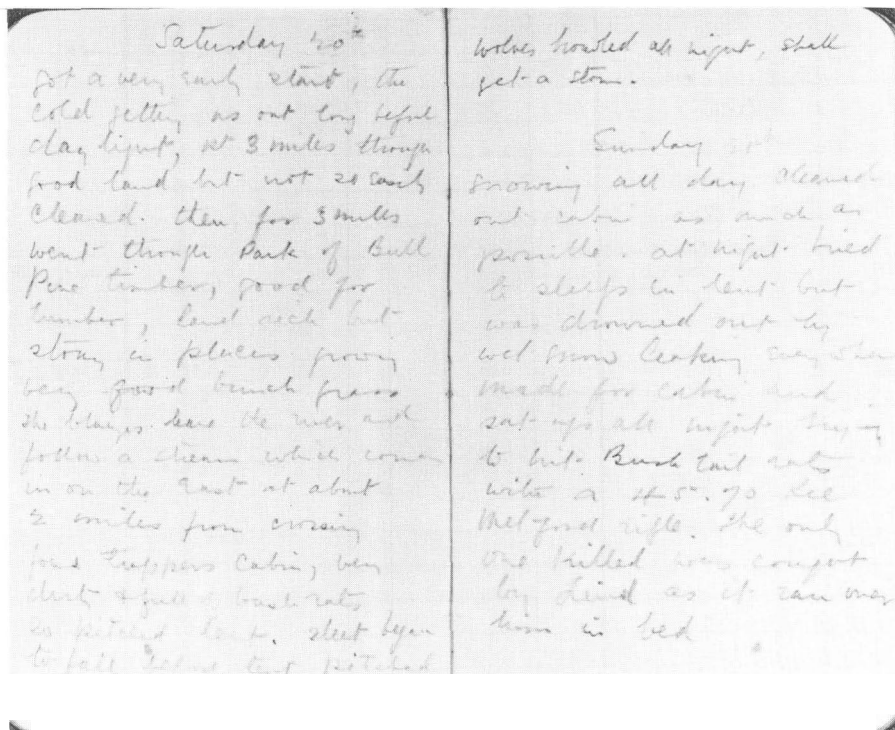 Saturday 20th
got a very early start, the
cold getting us out long before
day light, 1st 3 miles though
good land but not so easily
cleared. then for 3 miles
went through Park of Bull
Pine timber, good for
lumber, land rich but
stony in places growing
very good bunch grass
the blazes leave the river and
follow a stream which comes
in on the East at about
2 miles from crossing
found Trappers Cabin, very
dirty & full of bush rats
so pitched tent. sleet began
to fall before tent pitched
wolves howled all night, shall
get a storm.
Sunday
snowing all day cleaned
out cabin as much as
possible. at night tried
to sleep in tent but
was drowned out by
wet snow leaking everywhere
made for cabin and
sat up all night trying
to hit Bush tail rats
with a 45.70 Lee
Metford rifle. the only
one killed was caught
by Lind as it ran over
him in bed